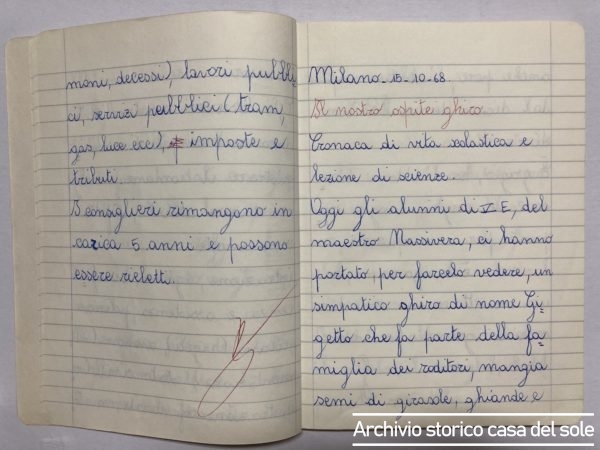 moni, decessi), lavori pubbli
ci, servizi pubblici (tram,
gas, luce ecc), imposte e
tributi
I consiglieri rimangono in
carica 5 anni e possono
essere rieletti.
Milano - 15-10-68.
Il nostro ospite ghiro
Cronaca di vita scolastica e
lezione di scienze.
Oggi gli alunni di V E, del
maestro Massivera, ci hanno
portato, per farcelo vedere, un
simpatico ghiro di nome Gi=
getto che fa parte della fa=
miglia dei roditori, mangia
semi di girasole, ghiande e
Archivio storico casa del sole